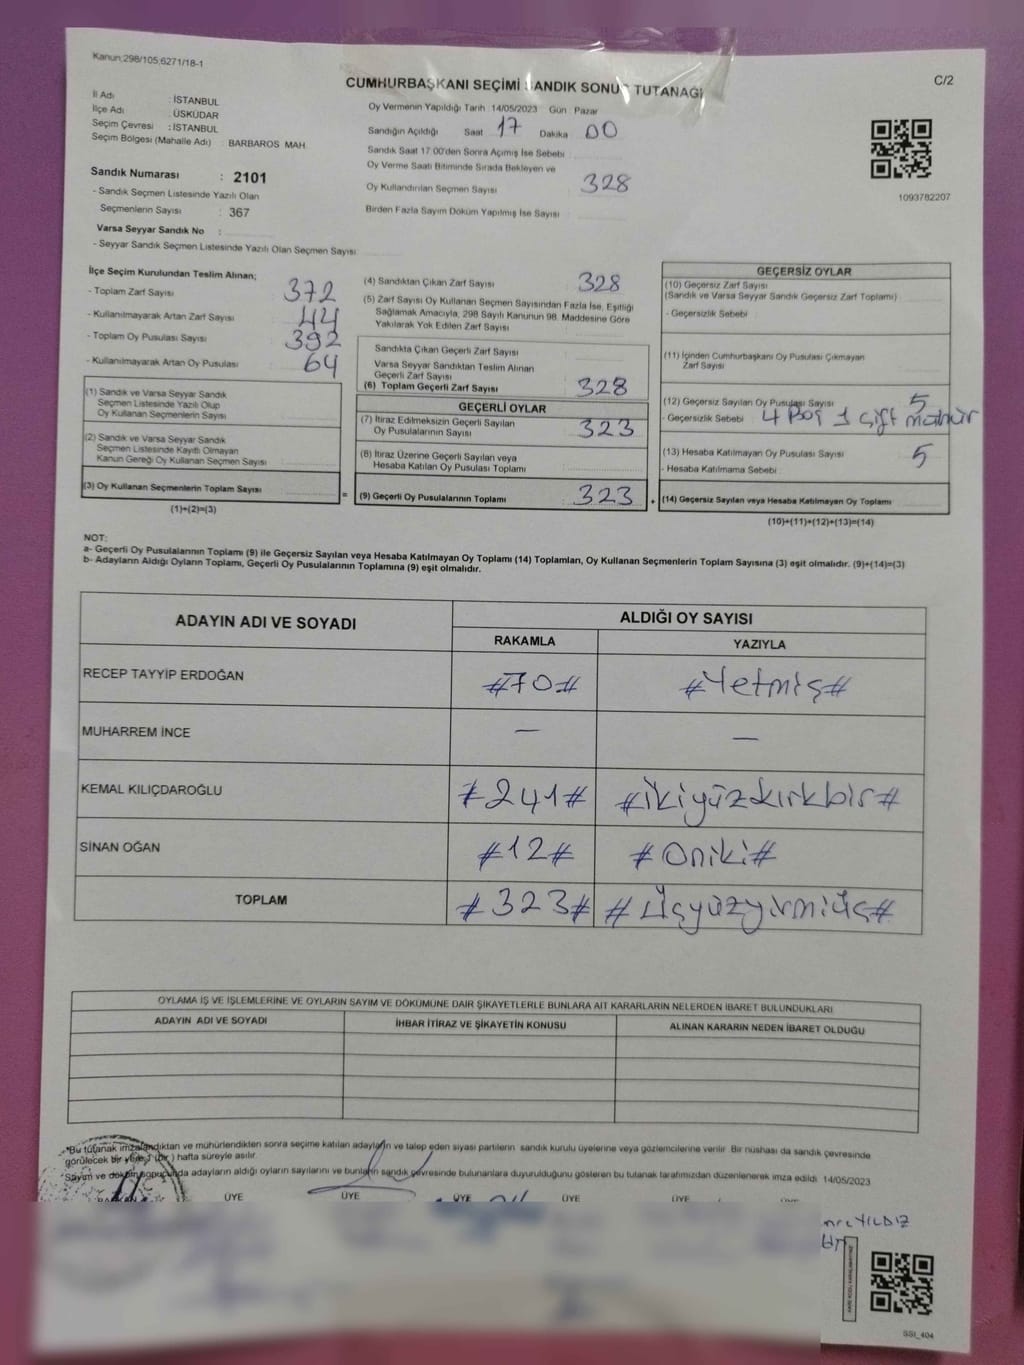 Kanun;298/105,6271/18-1
C/2
CUMHURBAŞKANI SEÇİMİ SANDIK SONUÇ TUTANAĞI
İl Adı : İSTANBUL
İlçe Adı : ÜSKÜDAR
Seçim Çevresi : İSTANBUL
Seçim Bölgesi (Mahalle Adı) : BARBAROS MAH.
Sandık Numarası : 2101
- Sandık Seçmen Listesinde Yazılı Olan
Seçmenlerin Sayısı : 367
Varsa Seyyar Sandık No :
- Seyyar Sandık Seçmen Listesinde Yazılı Olan Seçmen Sayısı
Oy Vermenin Yapıldığı Tarih 14/05/2023 Gün : Pazar
Sandığın Açıldığı Saat 17 Dakika 00
Sandık Saat 17:00'den Sonra Açımış İse Sebebi
Oy Verme Saati Bitiminde Sırada Bekleyen ve
Oy Kullandırılan Seçmen Sayısı 328
Birden Fazla Sayım Döküm Yapılmış İse Sayısı
1093782207
İlçe Seçim Kurulundan Teslim Alınan;
- Toplam Zarf Sayısı 372
- Kullanılmayarak Artan Zarf Sayısı 44
- Toplam Oy Pusulası Sayısı 392
- Kullanılmayarak Artan Oy Pusulası 64
(1) Sandık ve Varsa Seyyar Sandık
Seçmen Listesinde Yazılı Olup
Oy Kullanan Seçmenlerin Sayısı
(2) Sandık ve Varsa Seyyar Sandık
Seçmen Listesinde Kayıtlı Olmayan
Kanun Gereği Oy Kullanan Seçmen Sayısı
(3) Oy Kullanan Seçmenlerin Toplam Sayısı
(1)+(2)=(3)
(4) Sandıktan Çıkan Zarf Sayısı 328
(5) Zarf Sayısı Oy Kullanan Seçmen Sayısından Fazla İse, Eşitliği
Sağlamak Amacıyla, 298 Sayılı Kanunun 98. Maddesine Göre
Yakılarak Yok Edilen Zarf Sayısı
Sandıkta Çıkan Geçerli Zarf Sayısı
Varsa Seyyar Sandıktan Teslim Alınan
Geçerli Zarf Sayısı
(6) Toplam Geçerli Zarf Sayısı 328
GEÇERLİ OYLAR
(7) İtiraz Edilmeksizin Geçerli Sayılan
Oy Pusulalarının Sayısı 323
(8) İtiraz Üzerine Geçerli Sayılan veya
Hesaba Katılan Oy Pusulası Toplamı
= (9) Geçerli Oy Pusulalarının Toplamı 323 +
GEÇERSİZ OYLAR
(10) Geçersiz Zarf Sayısı
(Sandık ve Varsa Seyyar Sandık Geçersiz Zarf Toplamı)
- Geçersizlik Sebebi
(11) İçinden Cumhurbaşkanı Oy Pusulası Çıkmayan
Zarf Sayısı
(12) Geçersiz Sayılan Oy Pusulası Sayısı 5
- Geçersizlik Sebebi 4 Boş 1 çift mühür
(13) Hesaba Katılmayan Oy Pusulası Sayısı 5
- Hesaba Katılmama Sebebi
(14) Geçersiz Sayılan veya Hesaba Katılmayan Oy Toplamı
(10)+(11)+(12)+(13)=(14)
NOT:
a- Geçerli Oy Pusulalarının Toplamı (9) ile Geçersiz Sayılan veya Hesaba Katılmayan Oy Toplamı (14) Toplamları, Oy Kullanan Seçmenlerin Toplam Sayısına (3) eşit olmalıdır. (9)+(14)=(3)
b- Adayların Aldığı Oyların Toplamı, Geçerli Oy Pusulalarının Toplamına (9) eşit olmalıdır.
ADAYIN ADI VE SOYADI
ALDIĞI OY SAYISI
RAKAMLA YAZIYLA
RECEP TAYYİP ERDOĞAN #70# #Yetmiş#
MUHARREM İNCE — —
KEMAL KILIÇDAROĞLU #241# #ikiyüzkırkbir#
SİNAN OĞAN #12# #Oniki#
TOPLAM #323# #Üçyüzyirmiüç#
OYLAMA İŞ VE İŞLEMLERİNE VE OYLARIN SAYIM VE DÖKÜMÜNE DAİR ŞİKAYETLERLE BUNLARA AİT KARARLARIN NELERDEN İBARET BULUNDUKLARI
ADAYIN ADI VE SOYADI İHBAR İTİRAZ VE ŞİKAYETİN KONUSU ALINAN KARARIN NEDEN İBARET OLDUĞU
*Bu tutanak imzalandıktan ve mühürlendikten sonra seçime katılan adayların ve talep eden siyasi partilerin sandık kurulu üyelerine veya gözlemcilerine verilir. Bir nüshası da sandık çevresinde
görülecek bir yere 1 (bir) hafta süreyle asılır.
*Sayım ve döküm sonucunda adayların aldığı oyların sayılarını ve bunların sandık çevresinde bulunanlara duyurulduğunu gösteren bu tutanak tarafımızdan düzenlenerek imza edildi. 14/05/2023
ÜYE ÜYE ÜYE ÜYE ÜYE
YILDIZ
SSI_404